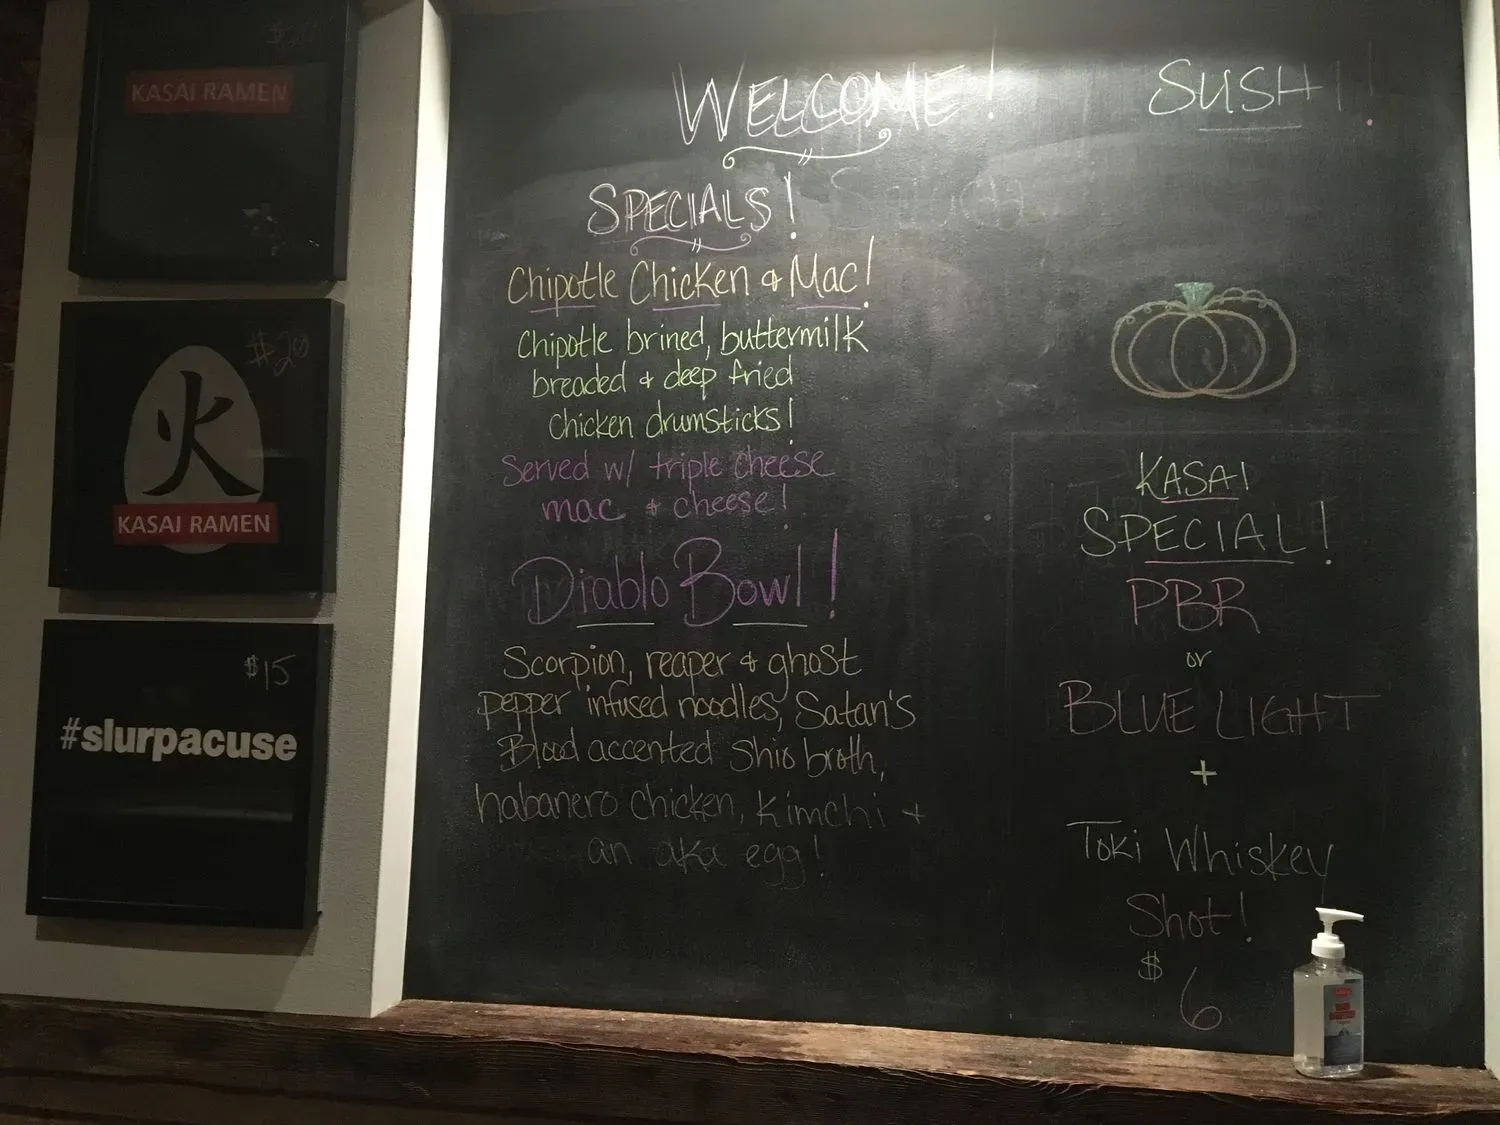 KASAI RAMEN
$20
火
KASAI RAMEN
$15
#slurpacuse
WELCOME!
SPECIALS!
Chipotle Chicken & Mac!
Chipotle brined, buttermilk
breaded & deep fried
Chicken drumsticks!
Served w/ triple cheese
mac + cheese!
Diablo Bowl!
Scorpion, reaper & ghost
pepper infused noodles, Satan's
Blood accented Shio broth,
habanero chicken, Kimchi +
an aka egg!
SUSHI!
KASAI
SPECIAL!
PBR
or
BLUE LIGHT
+
Toki Whiskey
Shot!
$6